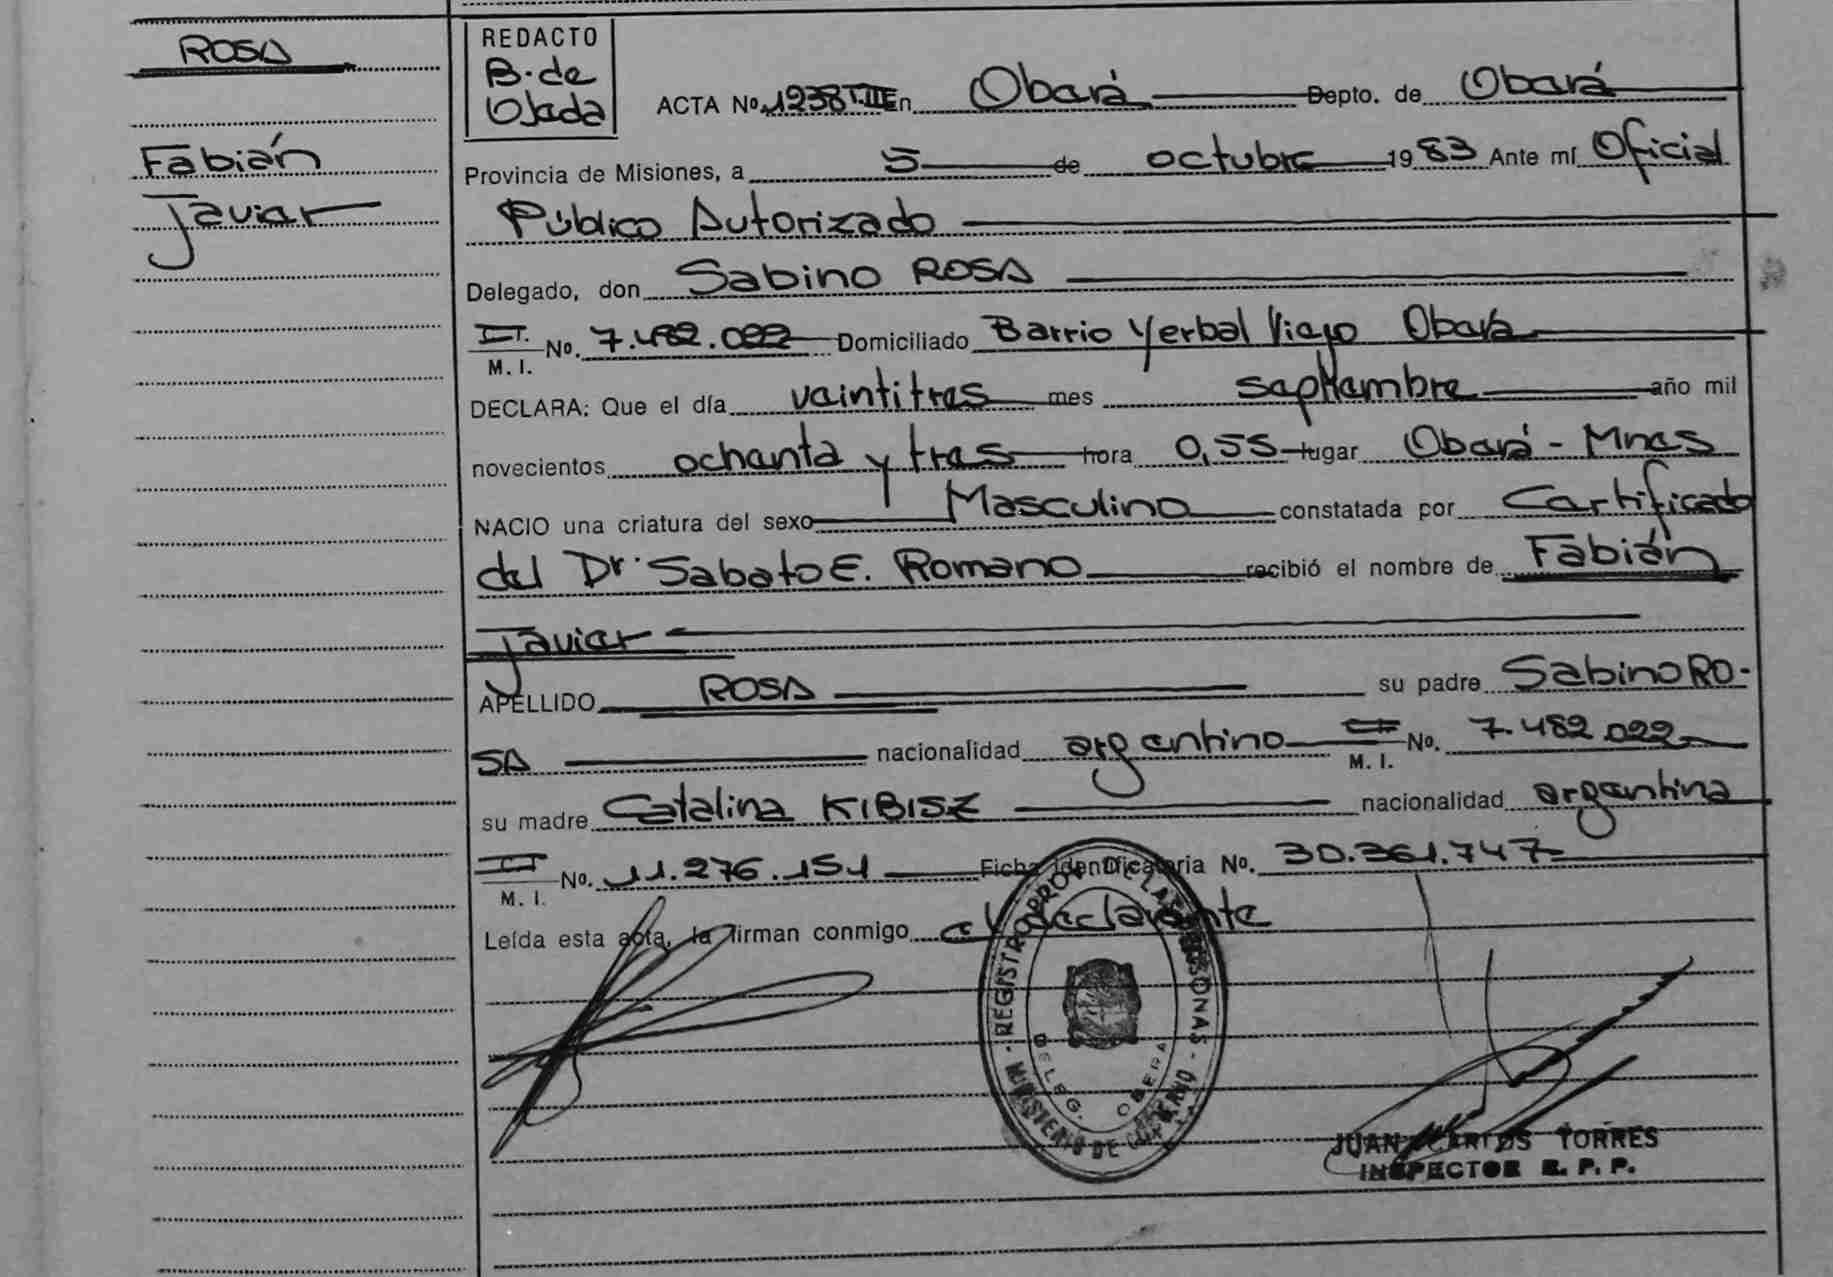 ROSA
Fabián
Javier
REDACTO
B. de
Ojeda
ACTA No. 1238 T.III En Oberá Depto. de Oberá
Provincia de Misiones, a 5 de octubre 1983 Ante mí Oficial
Público Autorizado
Delegado, don Sabino ROSA
M. I. No. 7.482.022 Domiciliado Barrio Yerbal Viejo Oberá
DECLARA: Que el día veintitres mes septiembre año mil
novecientos ochenta y tres hora 0,55 lugar Oberá - Mnes
NACIO una criatura del sexo Masculino constatada por Certificado
del Dr. Sabato E. Romano recibió el nombre de Fabián
Javier
APELLIDO ROSA su padre Sabino RO-
SA nacionalidad argentino M. I. No. 7.482.022
su madre Catalina KIBISZ nacionalidad argentina
M. I. No. 11.276.151 Ficha Identificatoria No. 30.361.747
Leída esta acta, la firman conmigo el declarante
REGISTRO PROV. DE LAS PERSONAS - MINISTERIO DE GOBIERNO -
DELEG. OBERA
JUAN CARLOS TORRES
INSPECTOR R. P. P.